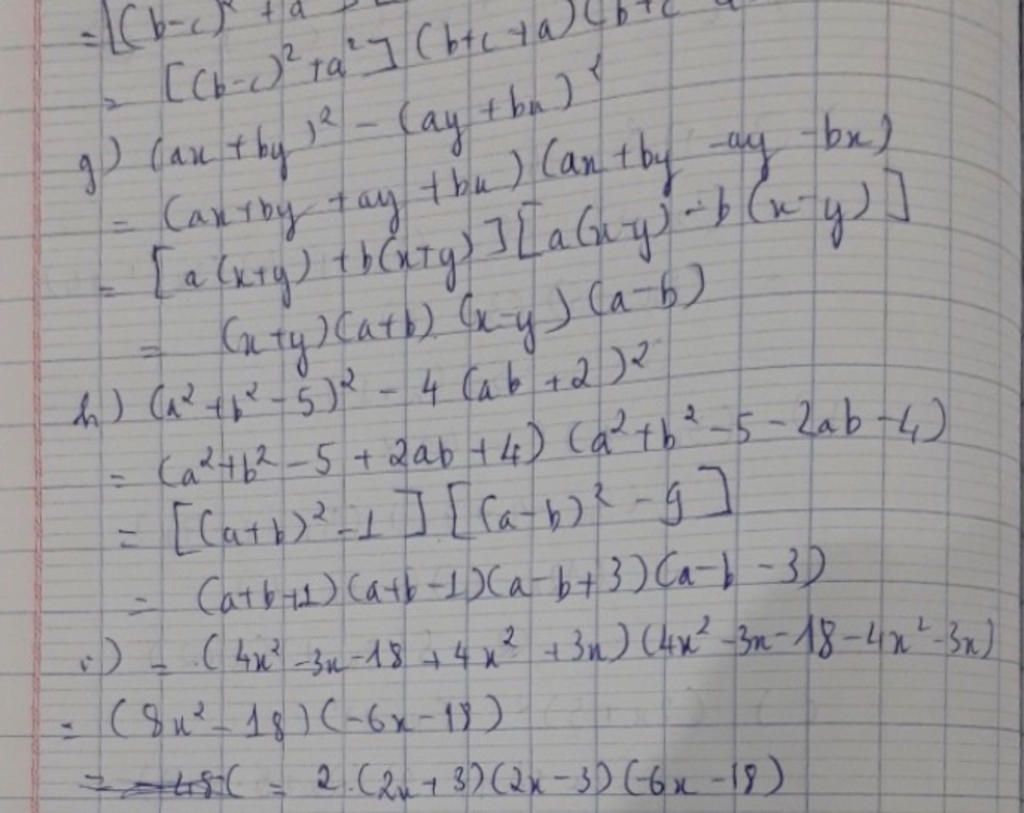 =[(b-c)² + a
= [(b-c)² + a²] (b+c+a)(b+c
g) (ax + by)² - (ay + bx)²
= (ax + by + ay + bx) (ax + by - ay - bx)
= [a(x+y) + b(x+y)] [a(x-y) - b(x-y)]
= (x+y)(a+b) (x-y) (a-b)
h) (a² + b² - 5)² - 4 (ab + 2)²
= (a² + b² - 5 + 2ab + 4) (a² + b² - 5 - 2ab - 4)
= [(a+b)² - 1] [(a-b)² - 9]
= (a+b+1)(a+b-1)(a-b+3)(a-b-3)
i) = (4x² - 3x - 18 + 4x² + 3x) (4x² - 3x - 18 - 4x² - 3x)
= (8x² - 18)(-6x - 18)
= -18( = 2.(2x+3)(2x-3)(-6x-18)